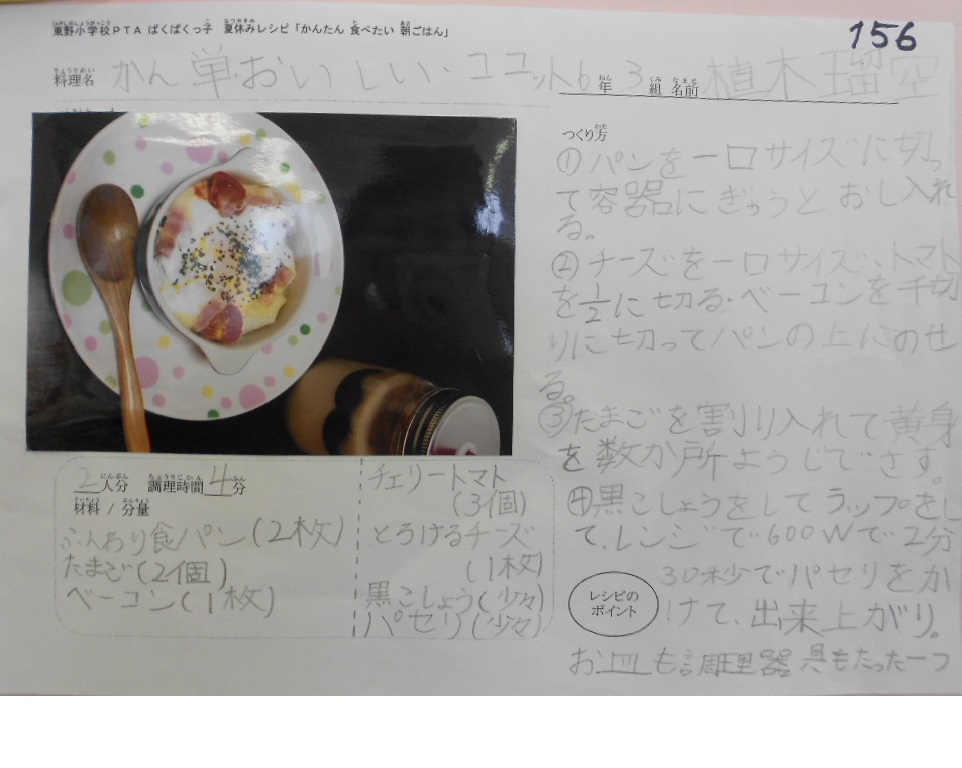 東野小学校PTA ぱくぱくっ子 夏休みレシピ「かんたん 食べたい 朝ごはん」
156
料理名 かん単・おいしい・ココット 6年 3組 名前 植木瑠空
つくり方
①パンを一口サイズに切っ
て容器にぎゅうとおし入れ
る。
②チーズを一口サイズ、トマト
を1/2に切る・ベーコンを千切
りに切ってパンの上にのせ
る。
③たまごを割り入れて黄身
を数か所ようじでさす。
④黒こしょうをしてラップをし
て、レンジで600Wで2分
30秒でパセリをか
けて、出来上がり。
レシピの
ポイント
お皿も調理器具もたった一つ
2人分 調理時間 4分
材料 / 分量
ふんわり食パン(2枚)
たまご(2個)
ベーコン(1枚)
チェリートマト
(3個)
とろけるチーズ
(1枚)
黒こしょう(少々)
パセリ(少々)